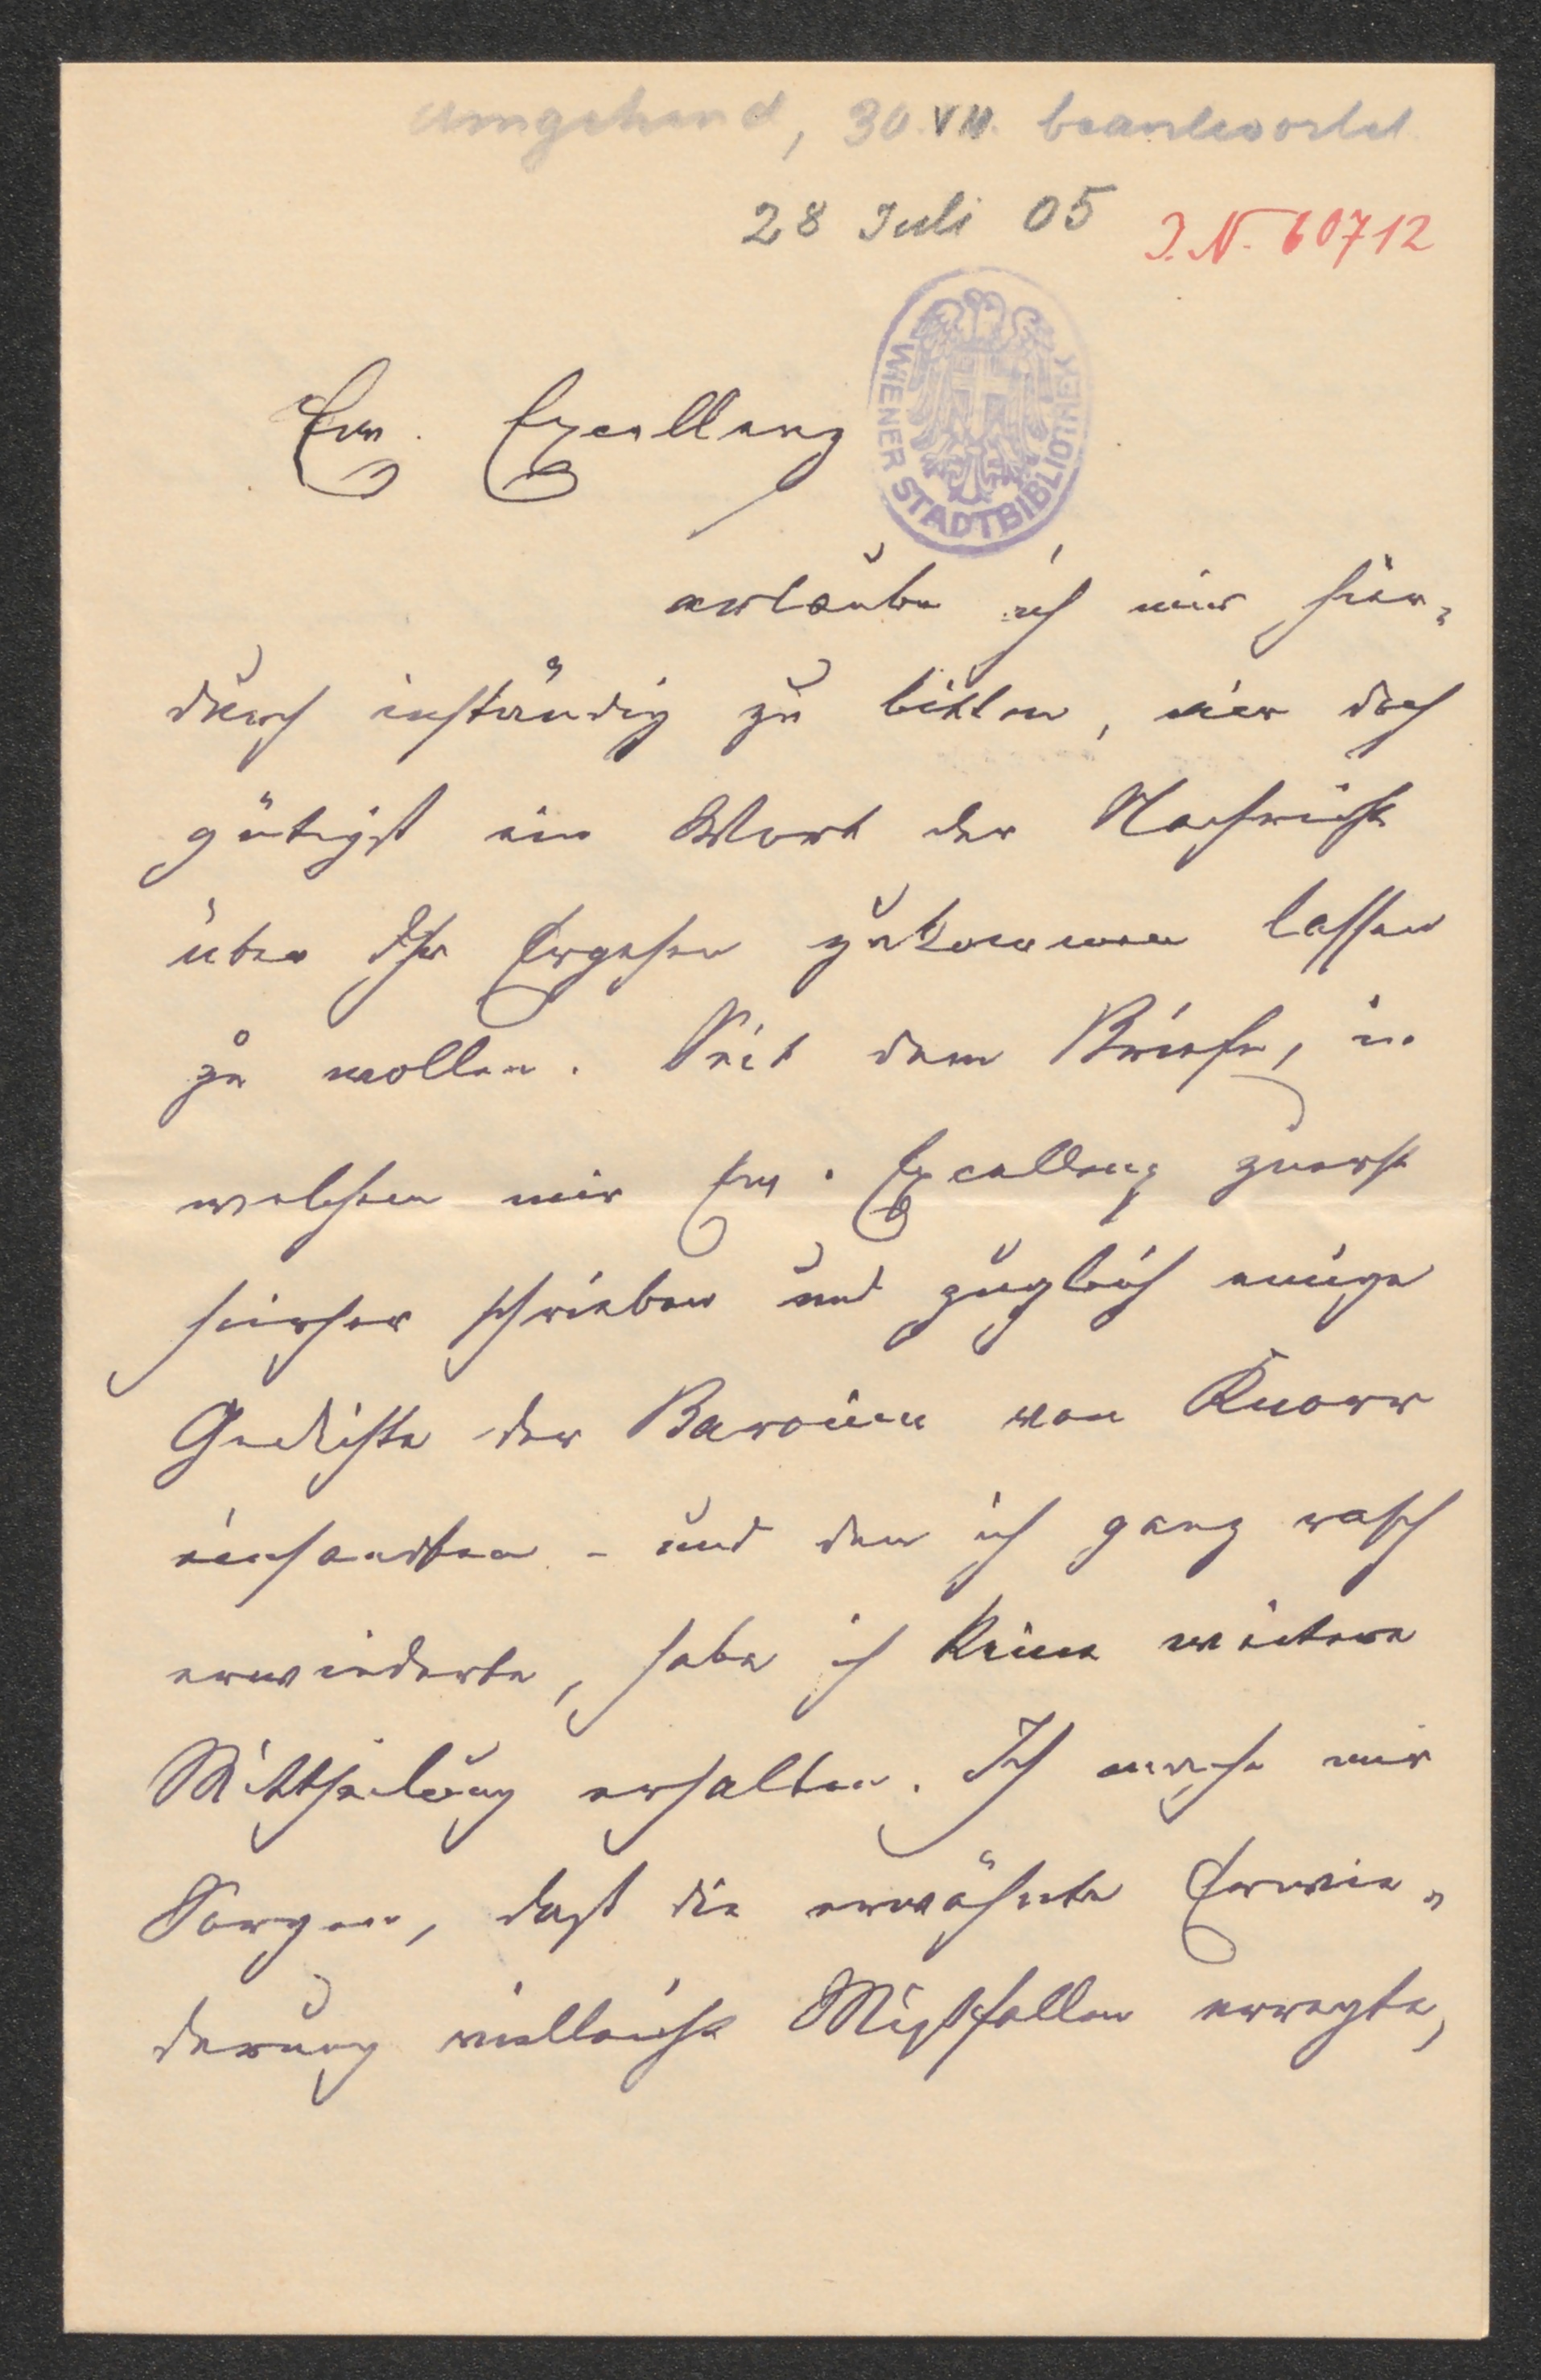 umgehend, 30. VII. beantwortet
28 Juli 05
I.N. 60712
WIENER STADTBIBLIOTHEK
Ew. Excellenz
erlaube ich mir hier-
durch inständig zu bitten, mir doch
gütigst ein Wort der Nachricht
über Ihr Ergehen zukommen lassen
zu wollen. Seit dem Briefe, in
welchem mir Ew. Excellenz zuerst
hierher schrieben und zugleich einige
Gedichte der Baronin von Knorr
einsandten - und den ich ganz rasch
erwiederte, habe ich keine weitere
Mittheilung erhalten. Ich mache mir
Sorgen, daß die erwähnte Erwie-
derung vielleicht Mißfallen erregte,